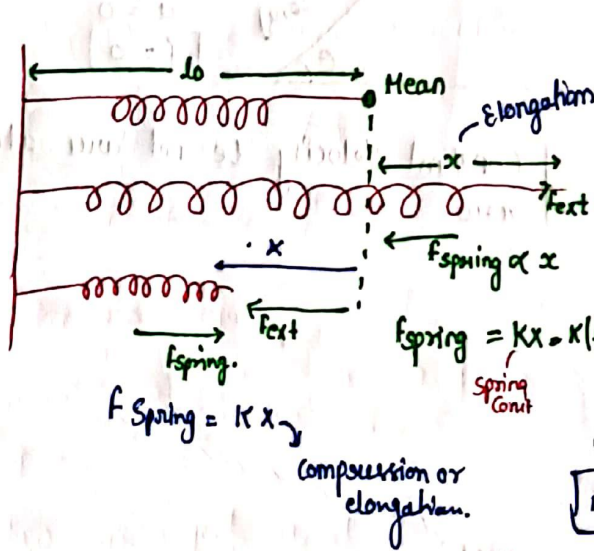 l₀
Mean
Elongation
x
Fext
Fspring ∝ x
x
Fext
Fspring.
Fspring = Kx = K(
Spring
Const
F Spring = Kx
Compression or
elongation.